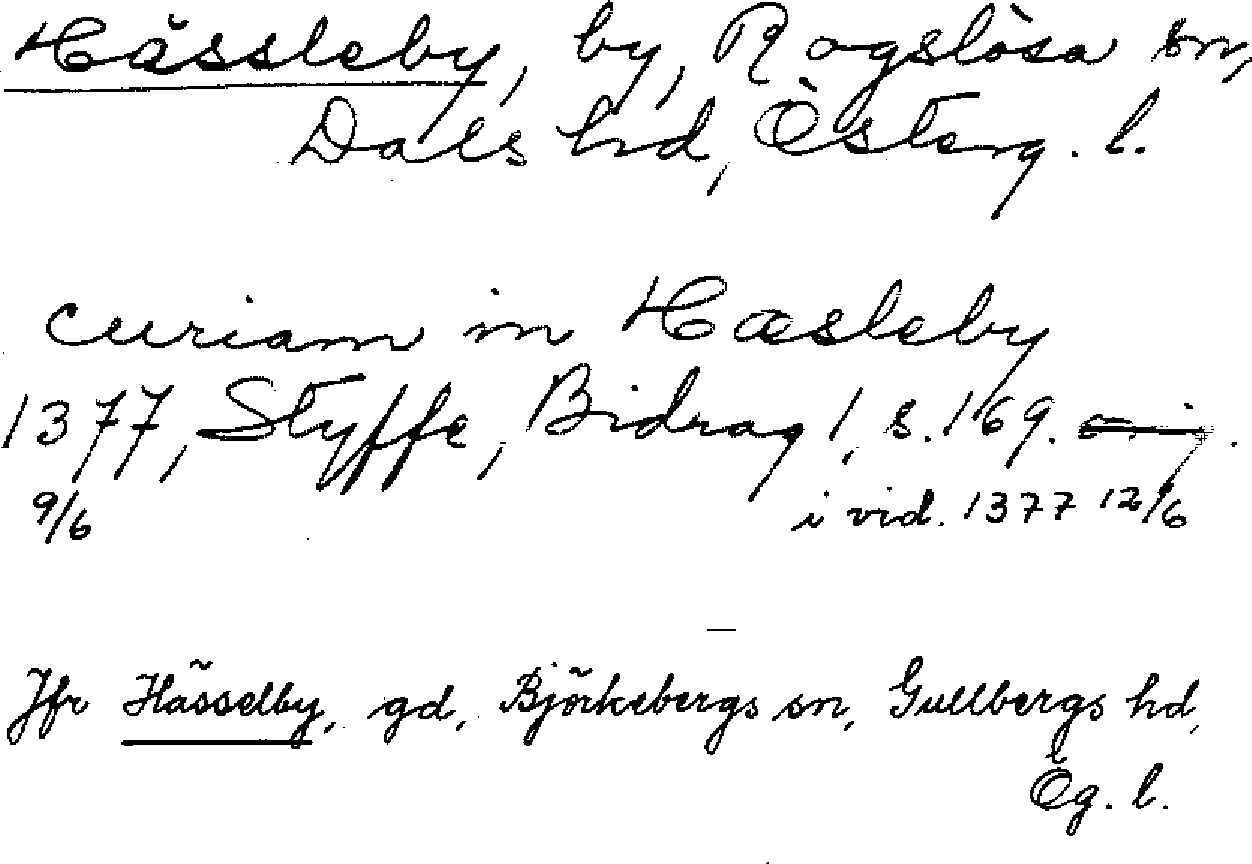 Hässleby, by, Rogslösa sn,
Dals hd, Österg. l.
curiam in Hæsleby
1377, Styffe, Bidrag 1, s. 169.
9/6
i vid. 1377 12/6
Jfr Hässelby, gd, Björkebergs sn, Gullbergs hd,
Ög. l.